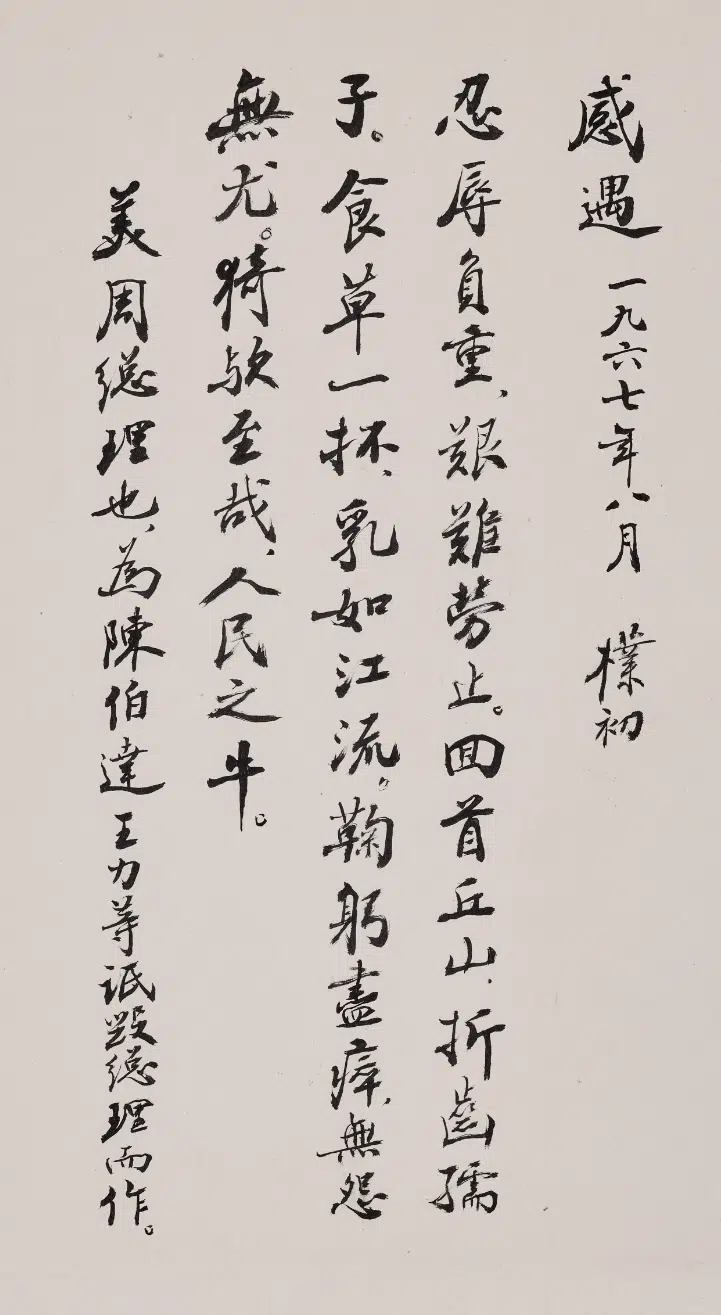 感遇 一九六七年八月 樸初
忍辱負重、艱難勞止。回首丘山、折齒孺
子。食草一抔、乳如江流。鞠躬盡瘁、無怨
無尤。猗歟至哉、人民之牛。
美周總理也、為陳伯達王力等詆毀總理而作。